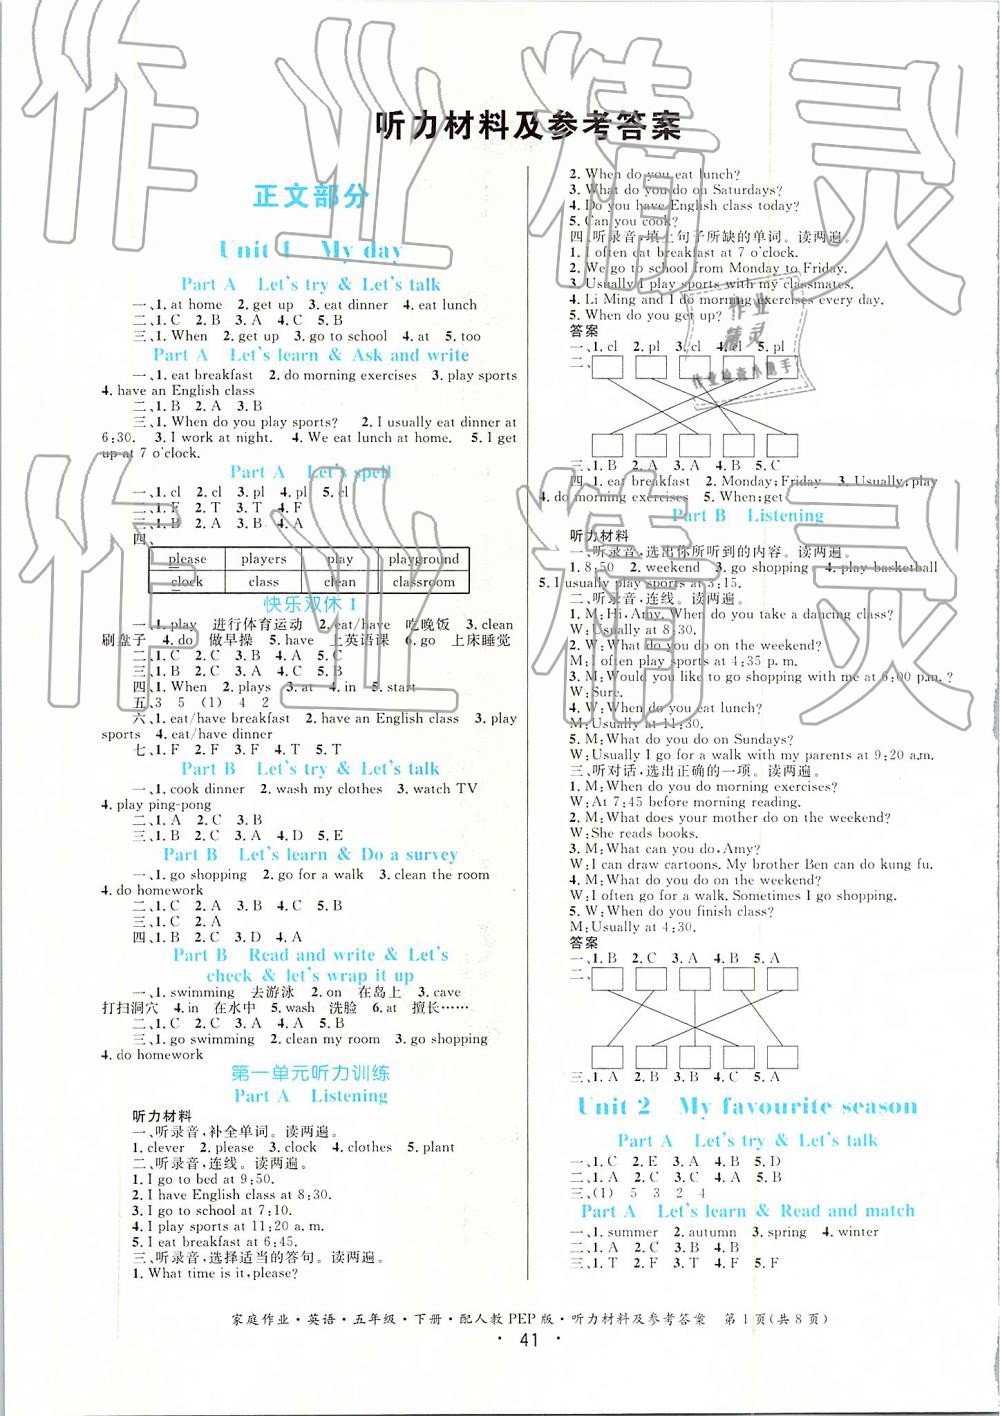 听力材料及参考答案
正文部分
Unit 1 My day
Part A Let's try & Let's talk
一、1. at home 2. get up 3. eat dinner 4. eat lunch
二、1. C 2. B 3. A 4. C 5. B
三、1. When 2. get up 3. go to school 4. at 5. too
Part A Let's learn & Ask and write
一、1. eat breakfast 2. do morning exercises 3. play sports
4. have an English class
二、1. B 2. A 3. B
三、1. When do you play sports? 2. I usually eat dinner at
6:30. 3. I work at night. 4. We eat lunch at home. 5. I get
up at 7 o'clock.
Part A Let's spell
一、1. cl 2. cl 3. pl 4. pl 5. cl
二、1. F 2. T 3. T 4. F
三、1. B 2. A 3. B 4. A
四、
please players play playground
clock class clean classroom
快乐双休 1
一、1. play 进行体育运动 2. eat/have 吃晚饭 3. clean
刷盘子 4. do 做早操 5. have 上英语课 6. go 上床睡觉
二、1. C 2. C 3. B 4. A 5. C
三、1. B 2. C 3. A 4. C 5. A
四、1. When 2. plays 3. at 4. in 5. start
五、3 5 (1) 4 2
六、1. eat/have breakfast 2. have an English class 3. play
sports 4. eat/have dinner
七、1. F 2. F 3. F 4. T 5. T
Part B Let's try & Let's talk
一、1. cook dinner 2. wash my clothes 3. watch TV
4. play ping-pong
二、1. A 2. C 3. B
三、1. B 2. C 3. A 4. D 5. E
Part B Let's learn & Do a survey
一、1. go shopping 2. go for a walk 3. clean the room
4. do homework
二、1. C 2. A 3. B 4. C 5. B
三、1. C 2. A
四、1. B 2. C 3. D 4. A
Part B Read and write & Let's
check & let's wrap it up
一、1. swimming 去游泳 2. on 在岛上 3. cave
打扫洞穴 4. in 在水中 5. wash 洗脸 6. at 擅长……
二、1. C 2. C 3. A 4. A 5. B
三、1. go swimming 2. clean my room 3. go shopping
4. do homework
第一单元听力训练
Part A Listening
听力材料
一、听录音,补全单词。读两遍。
1. clever 2. please 3. clock 4. clothes 5. plant
二、听录音,连线。读两遍。
1. I go to bed at 9:50.
2. I have English class at 8:30.
3. I go to school at 7:10.
4. I play sports at 11:20 a. m.
5. I eat breakfast at 6:45.
三、听录音,选择适当的答句。读两遍。
1. What time is it, please?
2. When do you eat lunch?
3. What do you do on Saturdays?
4. Do you have English class today?
5. Can you cook?
四、听录音,填上句子所缺的单词。读两遍。
1. I often eat breakfast at 7 o'clock.
2. We go to school from Monday to Friday.
3. Usually I play sports with my classmates.
4. Li Ming and I do morning exercises every day.
5. When do you get up?
答案
一、1. cl 2. pl 3. cl 4. cl 5. pl
二、
三、1. B 2. A 3. A 4. B 5. C
四、1. eat breakfast 2. Monday; Friday 3. Usually; play
4. do morning exercises 5. When; get
Part B Listening
听力材料
一、听录音,选出你所听到的内容。读两遍。
1. 8:50 2. weekend 3. go shopping 4. play basketball
5. I usually play sports at 3:15.
二、听录音,连线。读两遍。
1. M: Hi, Amy. When do you take a dancing class?
W: Usually at 8:30.
2. W: What do you do on Saturday?
M: I often play sports at 4:35 p. m.
3. M: Would you like to go shopping with me at 6:00 p.m. ?
W: Sure.
4. W: When do you eat lunch?
M: Usually at 11:30.
5. M: What do you do on Sundays?
W: Usually I go for a walk with my parents at 9:20 a.m.
三、听对话,选出正确的一项。读两遍。
1. M: When do you do morning exercises?
W: At 7:45 before morning reading.
2. M: What does your mother do on the weekend?
W: She reads books.
3. M: What can you do, Amy?
W: I can draw cartoons. My brother Ben can do kung fu.
4. M: What do you do on the weekend?
W: I often go for a walk. Sometimes I go shopping.
5. W: When do you finish class?
M: Usually at 4:30.
答案
一、1. B 2. C 3. A 4. B 5. A
二、
三、1. A 2. B 3. B 4. A 5. A
Unit 2 My favourite season
Part A Let's try & Let's talk
一、1. C 2. E 3. A 4. B 5. D
二、1. A 2. C 3. C 4. A 5. B
三、(1) 5 3 2 4
Part A Let's learn & Read and match
一、1. summer 2. autumn 3. spring 4. winter
二、1. A 2. C 3. B 4. B
三、1. T 2. F 3. T 4. F 5. F
家庭作业·英语·五年级·下册·配人教PEP版·听力材料及参考答案 第1页(共8页)
· 41 ·
作业精灵
作业精灵
作业
精灵
作业检查小助手